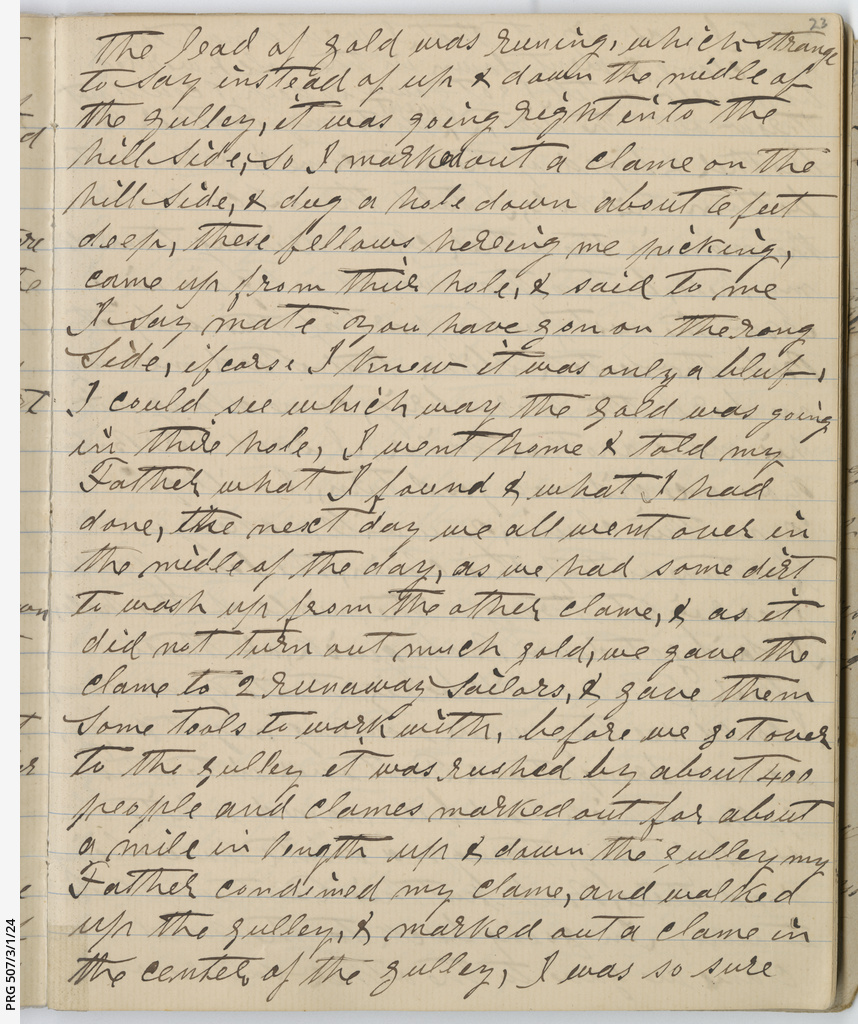 23
the lead of gold was runing, which strange
to say instead of up & down the midle of
the gulley, it was going right into the
hill side, so I marked out a clame on the
hill side, & dug a hole down about 6 feet
deep, these fellows hereing me picking,
came up from thier hole, & said to me
I say mate you have gon on the rong
side, ifcorse I knew it was only a bluf,
I could see which way the gold was going
in thire hole, I went home & told my
Father what I found & what I had
done, the next day we all went over in
the midle of the day, as we had some dirt
to wash up from the other clame, & as it
did not turn out much gold, we gave the
clame to 2 runaway sailors, & gave them
some tools to work with, before we got over
to the gulley it was rushed by about 400
people and clames marked out for about
a mile in length up & down the gulley my
Father condimed my clame, and walked
up the gulley, & marked out a clame in
the center of the gulley, I was so sure
PRG 507/3/1/24